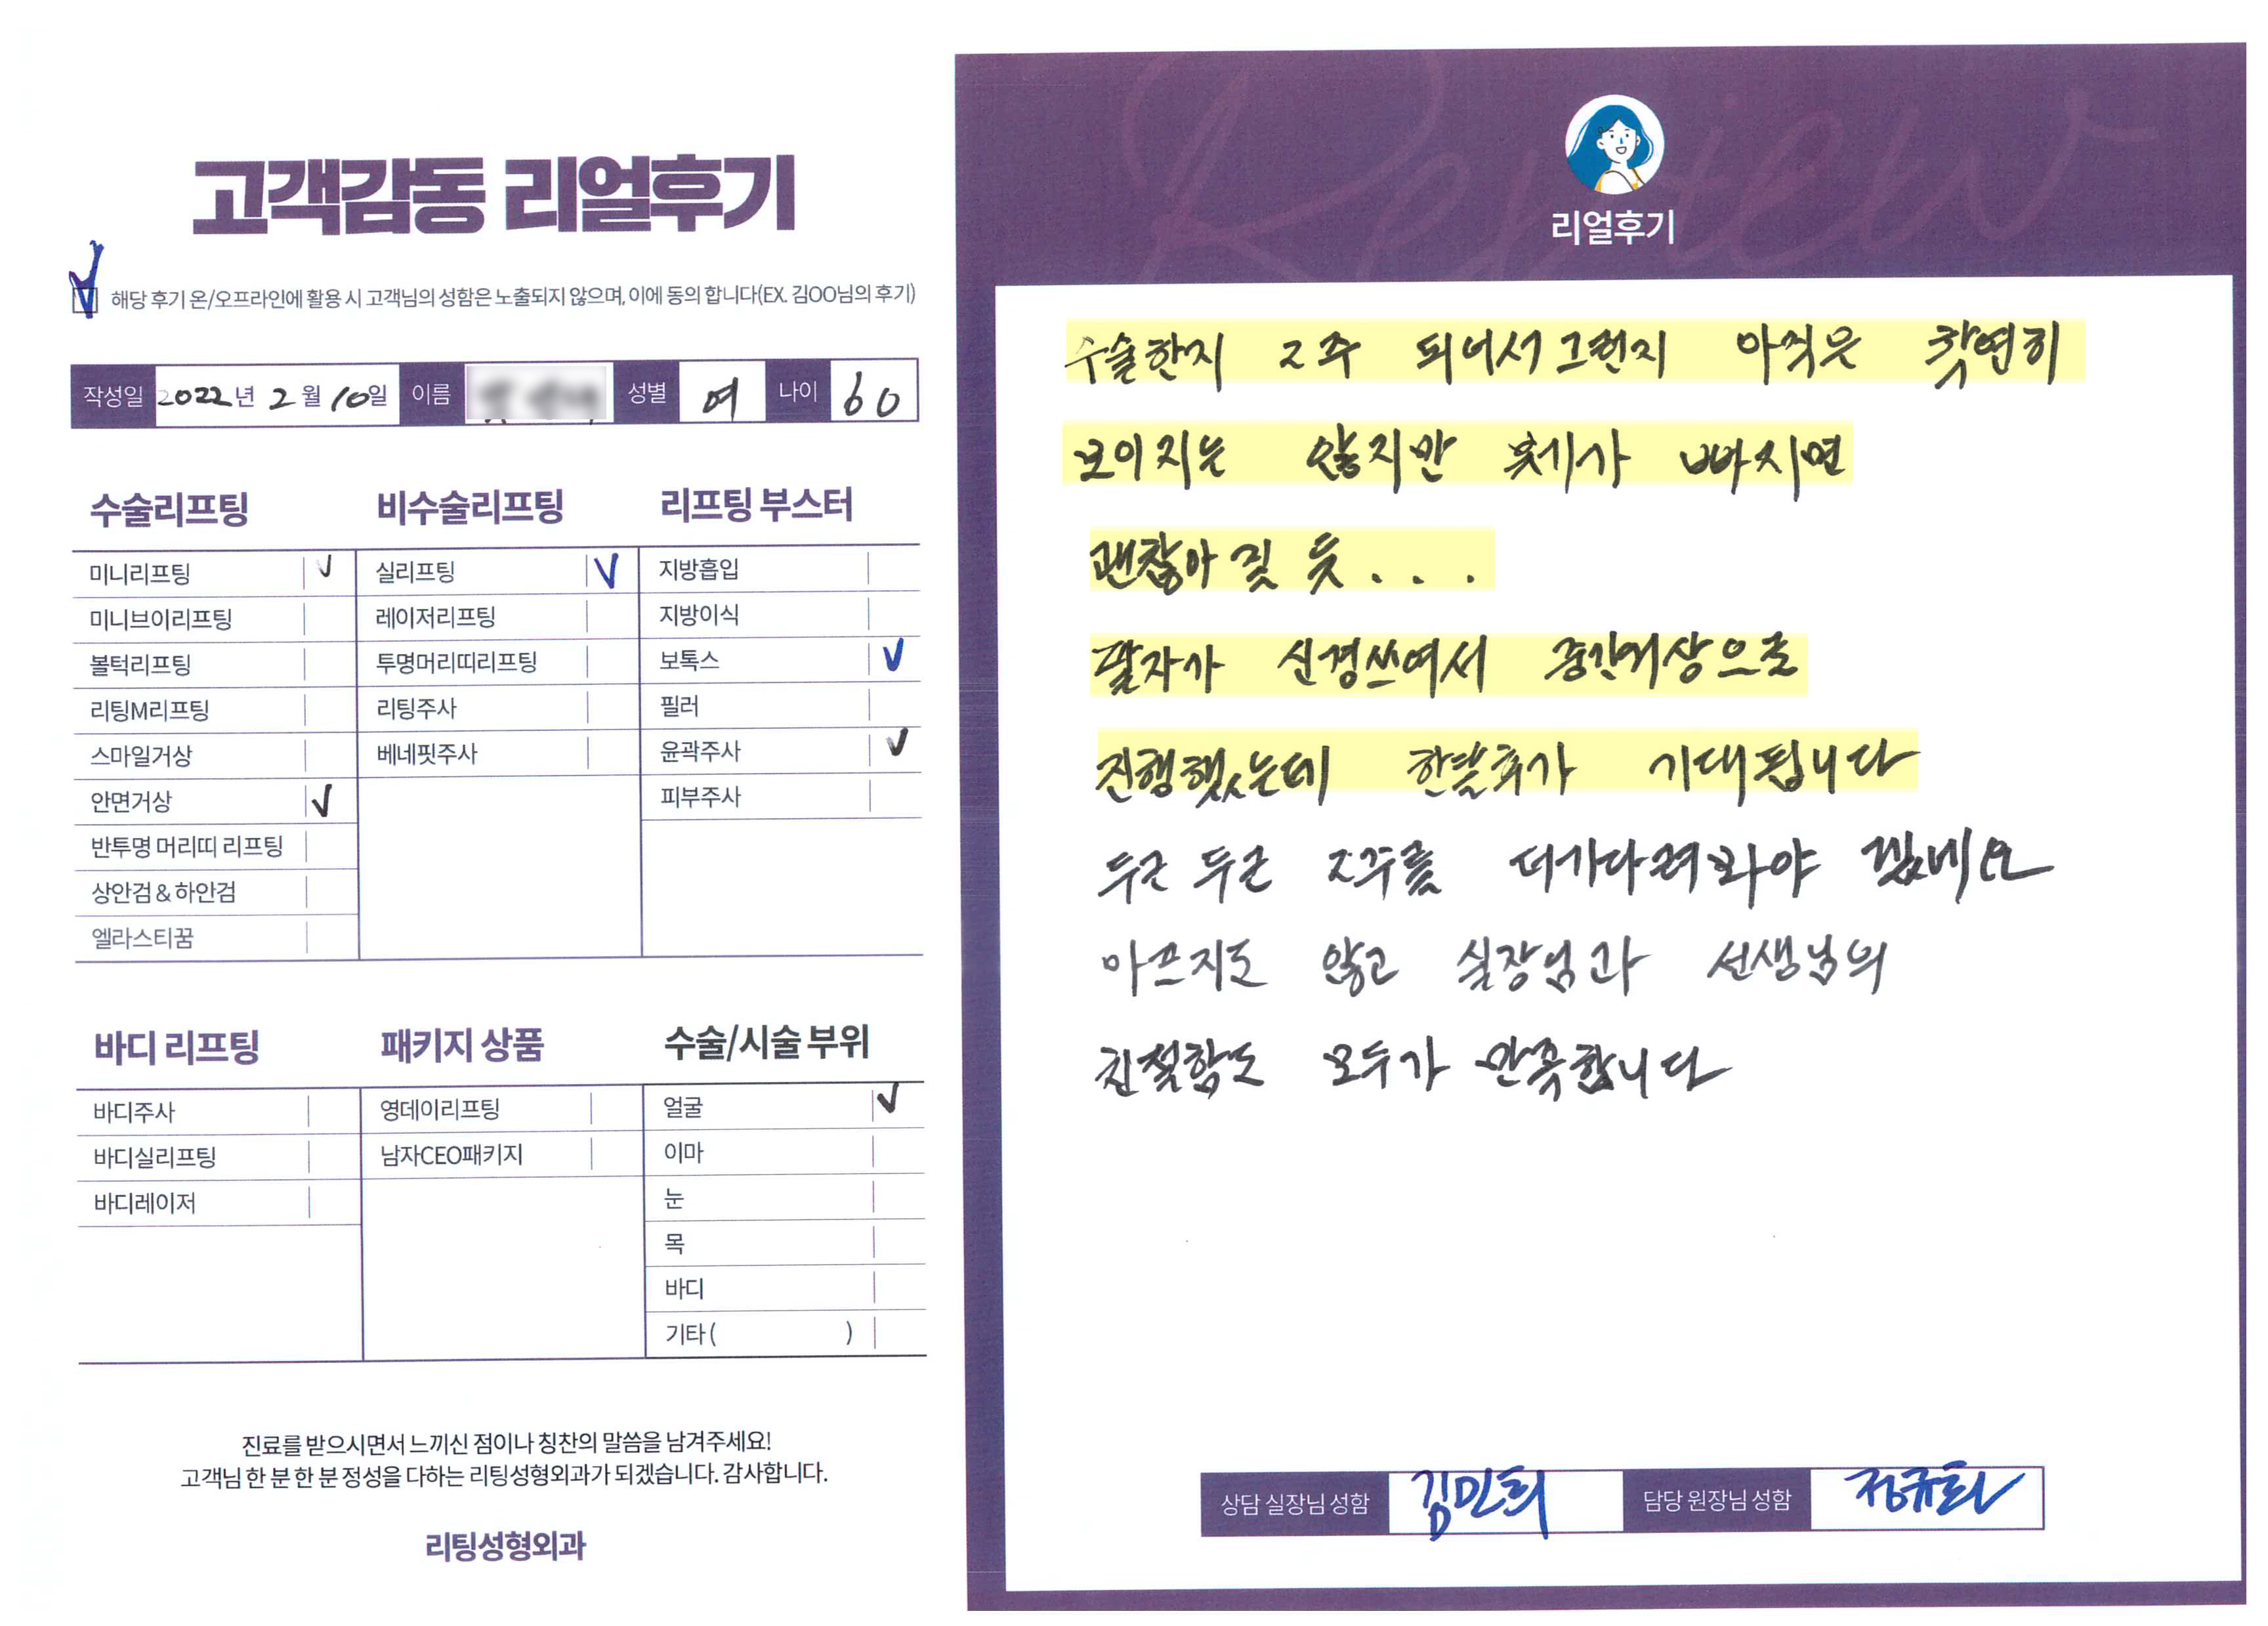 고객감동 리얼후기
해당 후기 온/오프라인에 활용 시 고객님의 성함은 노출되지 않으며, 이에 동의 합니다(EX. 김OO님의 후기)
작성일 2022년 2월 10일 이름 성별 여 나이 60
수술리프팅
미니리프팅
미니브이리프팅
볼턱리프팅
리팅M리프팅
스마일거상
안면거상
반투명 머리띠 리프팅
상안검 & 하안검
엘라스티꿈
비수술리프팅
실리프팅
레이저리프팅
투명머리띠리프팅
리팅주사
베네핏주사
리프팅 부스터
지방흡입
지방이식
보톡스
필러
윤곽주사
피부주사
바디 리프팅
바디주사
바디실리프팅
바디레이저
패키지 상품
영데이리프팅
남자CEO패키지
수술/시술 부위
얼굴
이마
눈
목
바디
기타 ( )
진료를 받으시면서 느끼신 점이나 칭찬의 말씀을 남겨주세요!
고객님 한 분 한 분 정성을 다하는 리팅성형외과가 되겠습니다. 감사합니다.
리팅성형외과
Review
리얼후기
수술한지 2주 되어서그런지 아직은 확연히
보이지는 않지만 붓기가 빠지면
괜찮아 질 듯 . . .
팔자가 신경쓰여서 중간거상으로
진행했는데 한달후가 기대됩니다
두근 두근 2주를 더기다려봐야 겠네요
아프지도 않고 실장님과 선생님의
친절함도 모두가 만족합니다
상담 실장님 성함 김민희 담당 원장님 성함 정규화